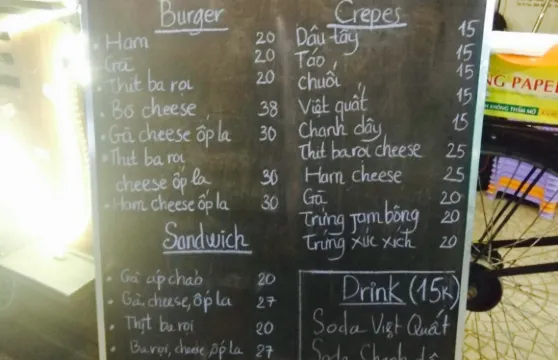 Burger
Ham 20
Gà 20
Thịt ba rọi 20
Bò cheese 38
Gà cheese ốp la 30
Thịt ba rọi
cheese ốp la 30
Ham cheese ốp la 30
Sandwich
Gà áp chảo 20
Gà, cheese, ốp la 27
Thịt ba rọi 20
Ba rọi, cheese ốp la 27
Crepes
Dâu tây 15
Táo 15
Chuối 15
Việt quất 15
Chanh dây 15
Thịt ba rọi cheese 25
Ham cheese 25
Gà 20
Trứng Jam bông 20
Trứng xúc xích 20
Drink (15k)
Soda Việt Quất
Soda Chanh dây
NG PAPER
KHÔNG THẤM MỠ